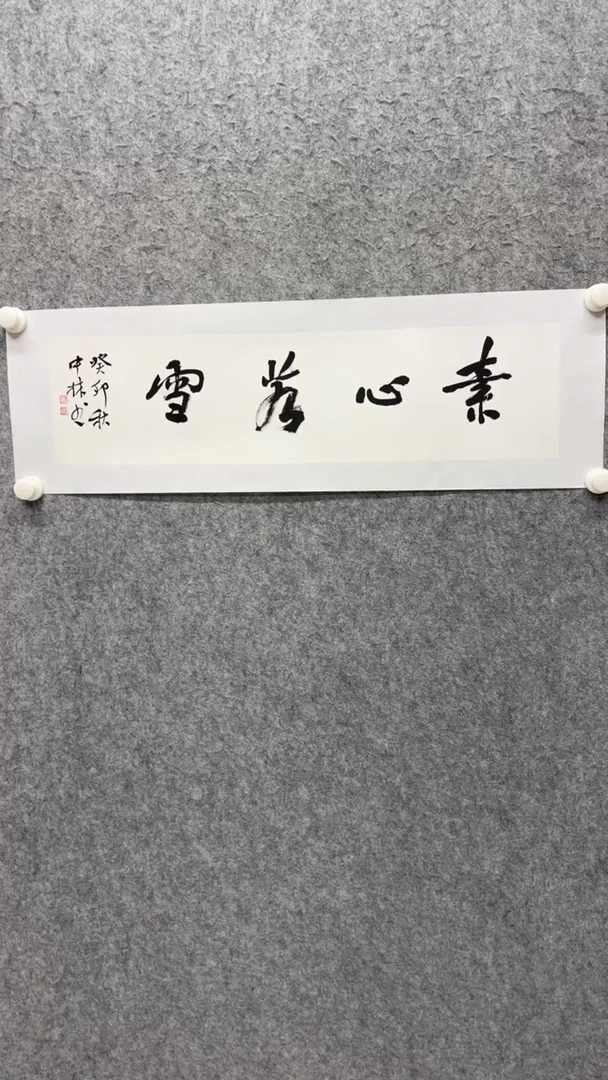 素心若雪
癸卯秋
中林书